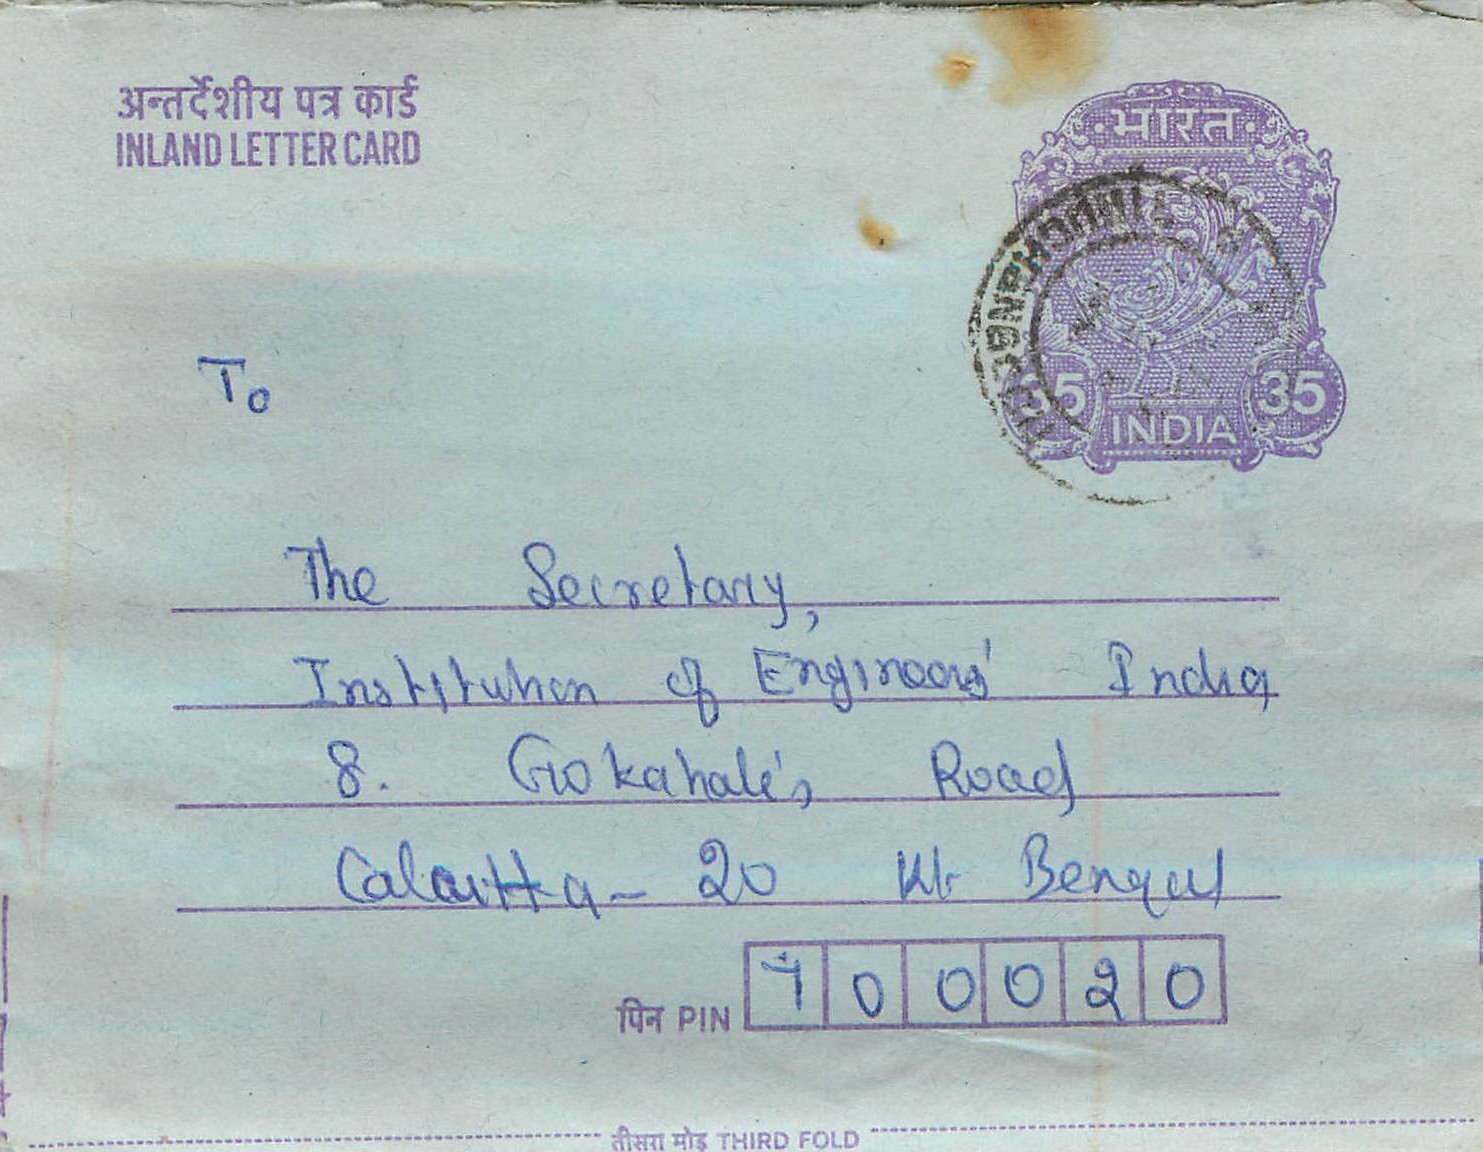 अन्तर्देशीय पत्र कार्ड
INLAND LETTER CARD
भारत
35 35
INDIA
To
The Secretary,
Institution of Engineers' India
8. Gokahale's Road
Calcutta - 20 Wt Bengal
पिन PIN 700020
तीसरा मोड़ THIRD FOLD